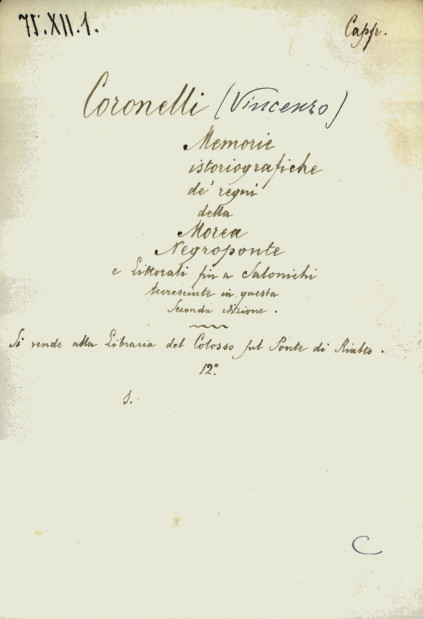 71.XII.1.
Capp.
Coronelli (Vincenzo)
Memorie
istoriografiche
de' regni
della
Morea
Negroponte
e Littorali fin a Salonichi
in questa
Seconda edizione.
Si vende alla Libraria del Colosso sul Ponte di Rialto.
12°.
C